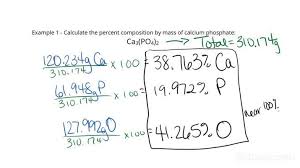 Example 1 - Calculate the percent composition by mass of calcium phosphate:
Ca₃(PO₄)₂ → Total = 310.174g
120.234g Ca / 310.174g x 100 = 38.763% Ca
61.948g P / 310.174g x 100 = 19.972% P
127.992g O / 310.174g x 100 = 41.265% O
near 100%